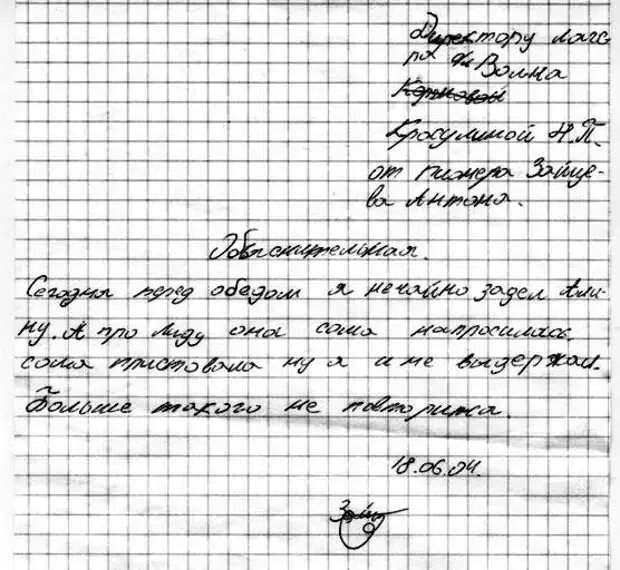 Директору лаге
ря д/л Волна
Красулиной Н.П.
от пионера Зайце-
ва Антона.
Объяснительная.
Сегодня перед обедом я нечайно задел Али-
ну. А про Лиду она сама напросилась.
сама пристовала ну я и не выдержал.
Больше такого не повторитса.
18.06.04.
Зайц